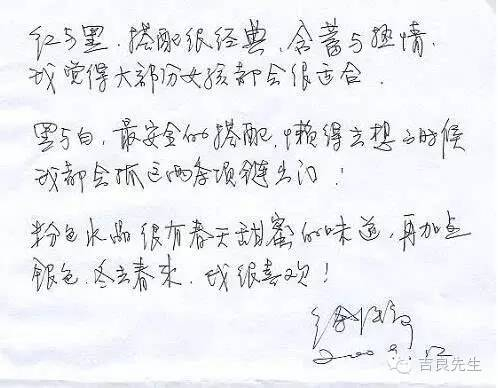 红与黑,搭配很经典,含蓄与热情.
我觉得大部份女孩都会很适合.
黑与白,最安全的搭配,懒得去想的时候
我都会抓这两条项链出门!
粉色水晶很有春天甜蜜的味道,再加点
银色,冬去春来,我很喜欢!
吉良先生